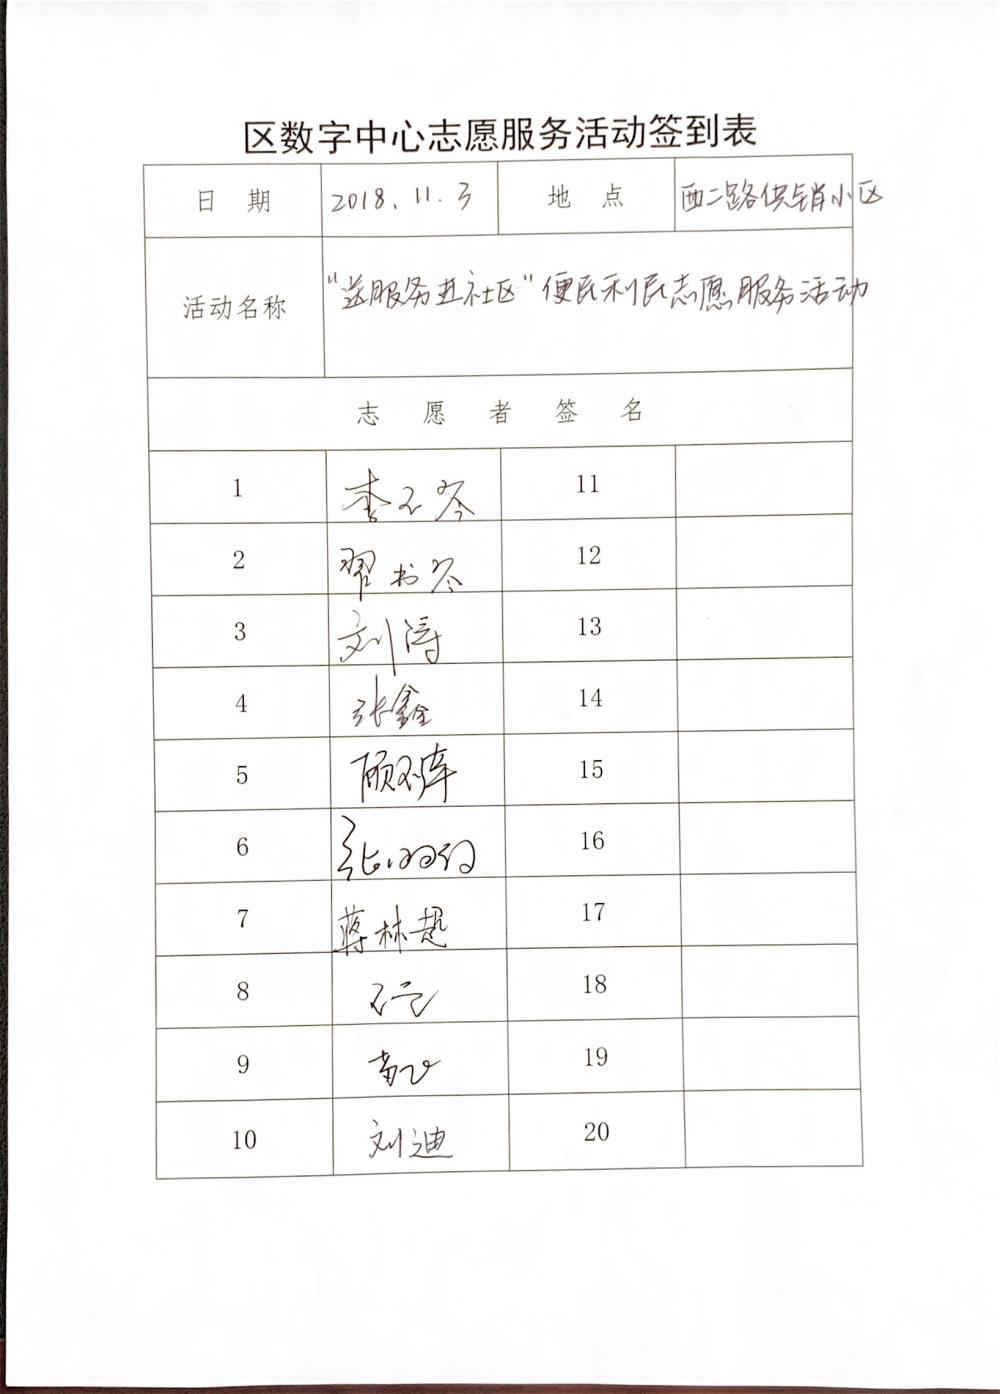 区数字中心志愿服务活动签到表
日 期 2018.11.3 地 点 西二路供销小区
活动名称 "送服务进社区"便民利民志愿服务活动
志 愿 者 签 名
1 11
2 12
3 刘涛 13
4 张鑫 14
5 15
6 16
7 蒋林超 17
8 18
9 19
10 刘迪 20